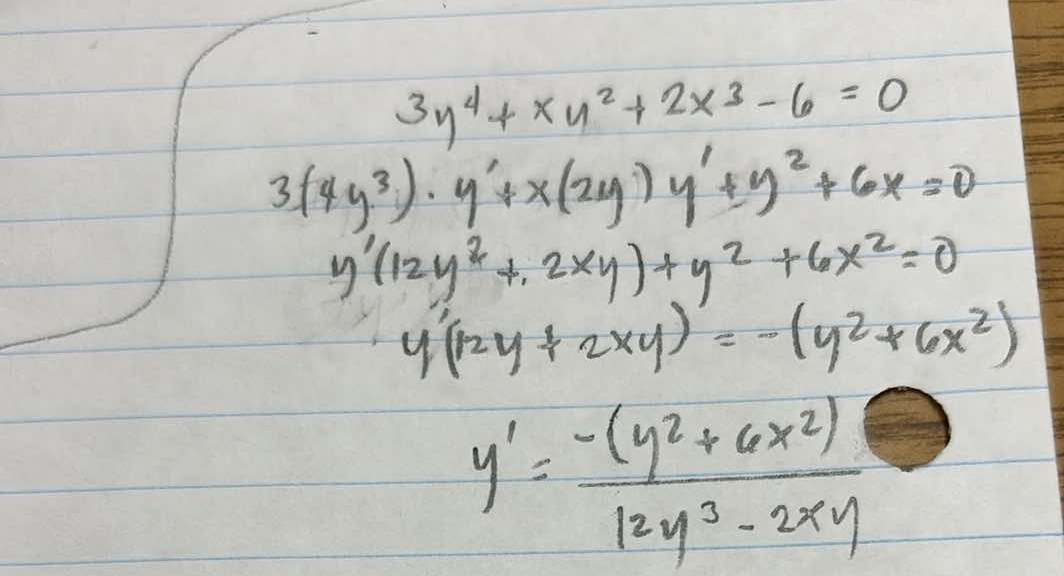 3y⁴ + xy² + 2x³ - 6 = 0
3(4y³) · y' + x(2y) y' + y² + 6x = 0
y'(12y² + 2xy) + y² + 6x² = 0
y'(12y + 2xy) = -(y² + 6x²)
y' = -(y² + 6x²) / 12y³ - 2xy